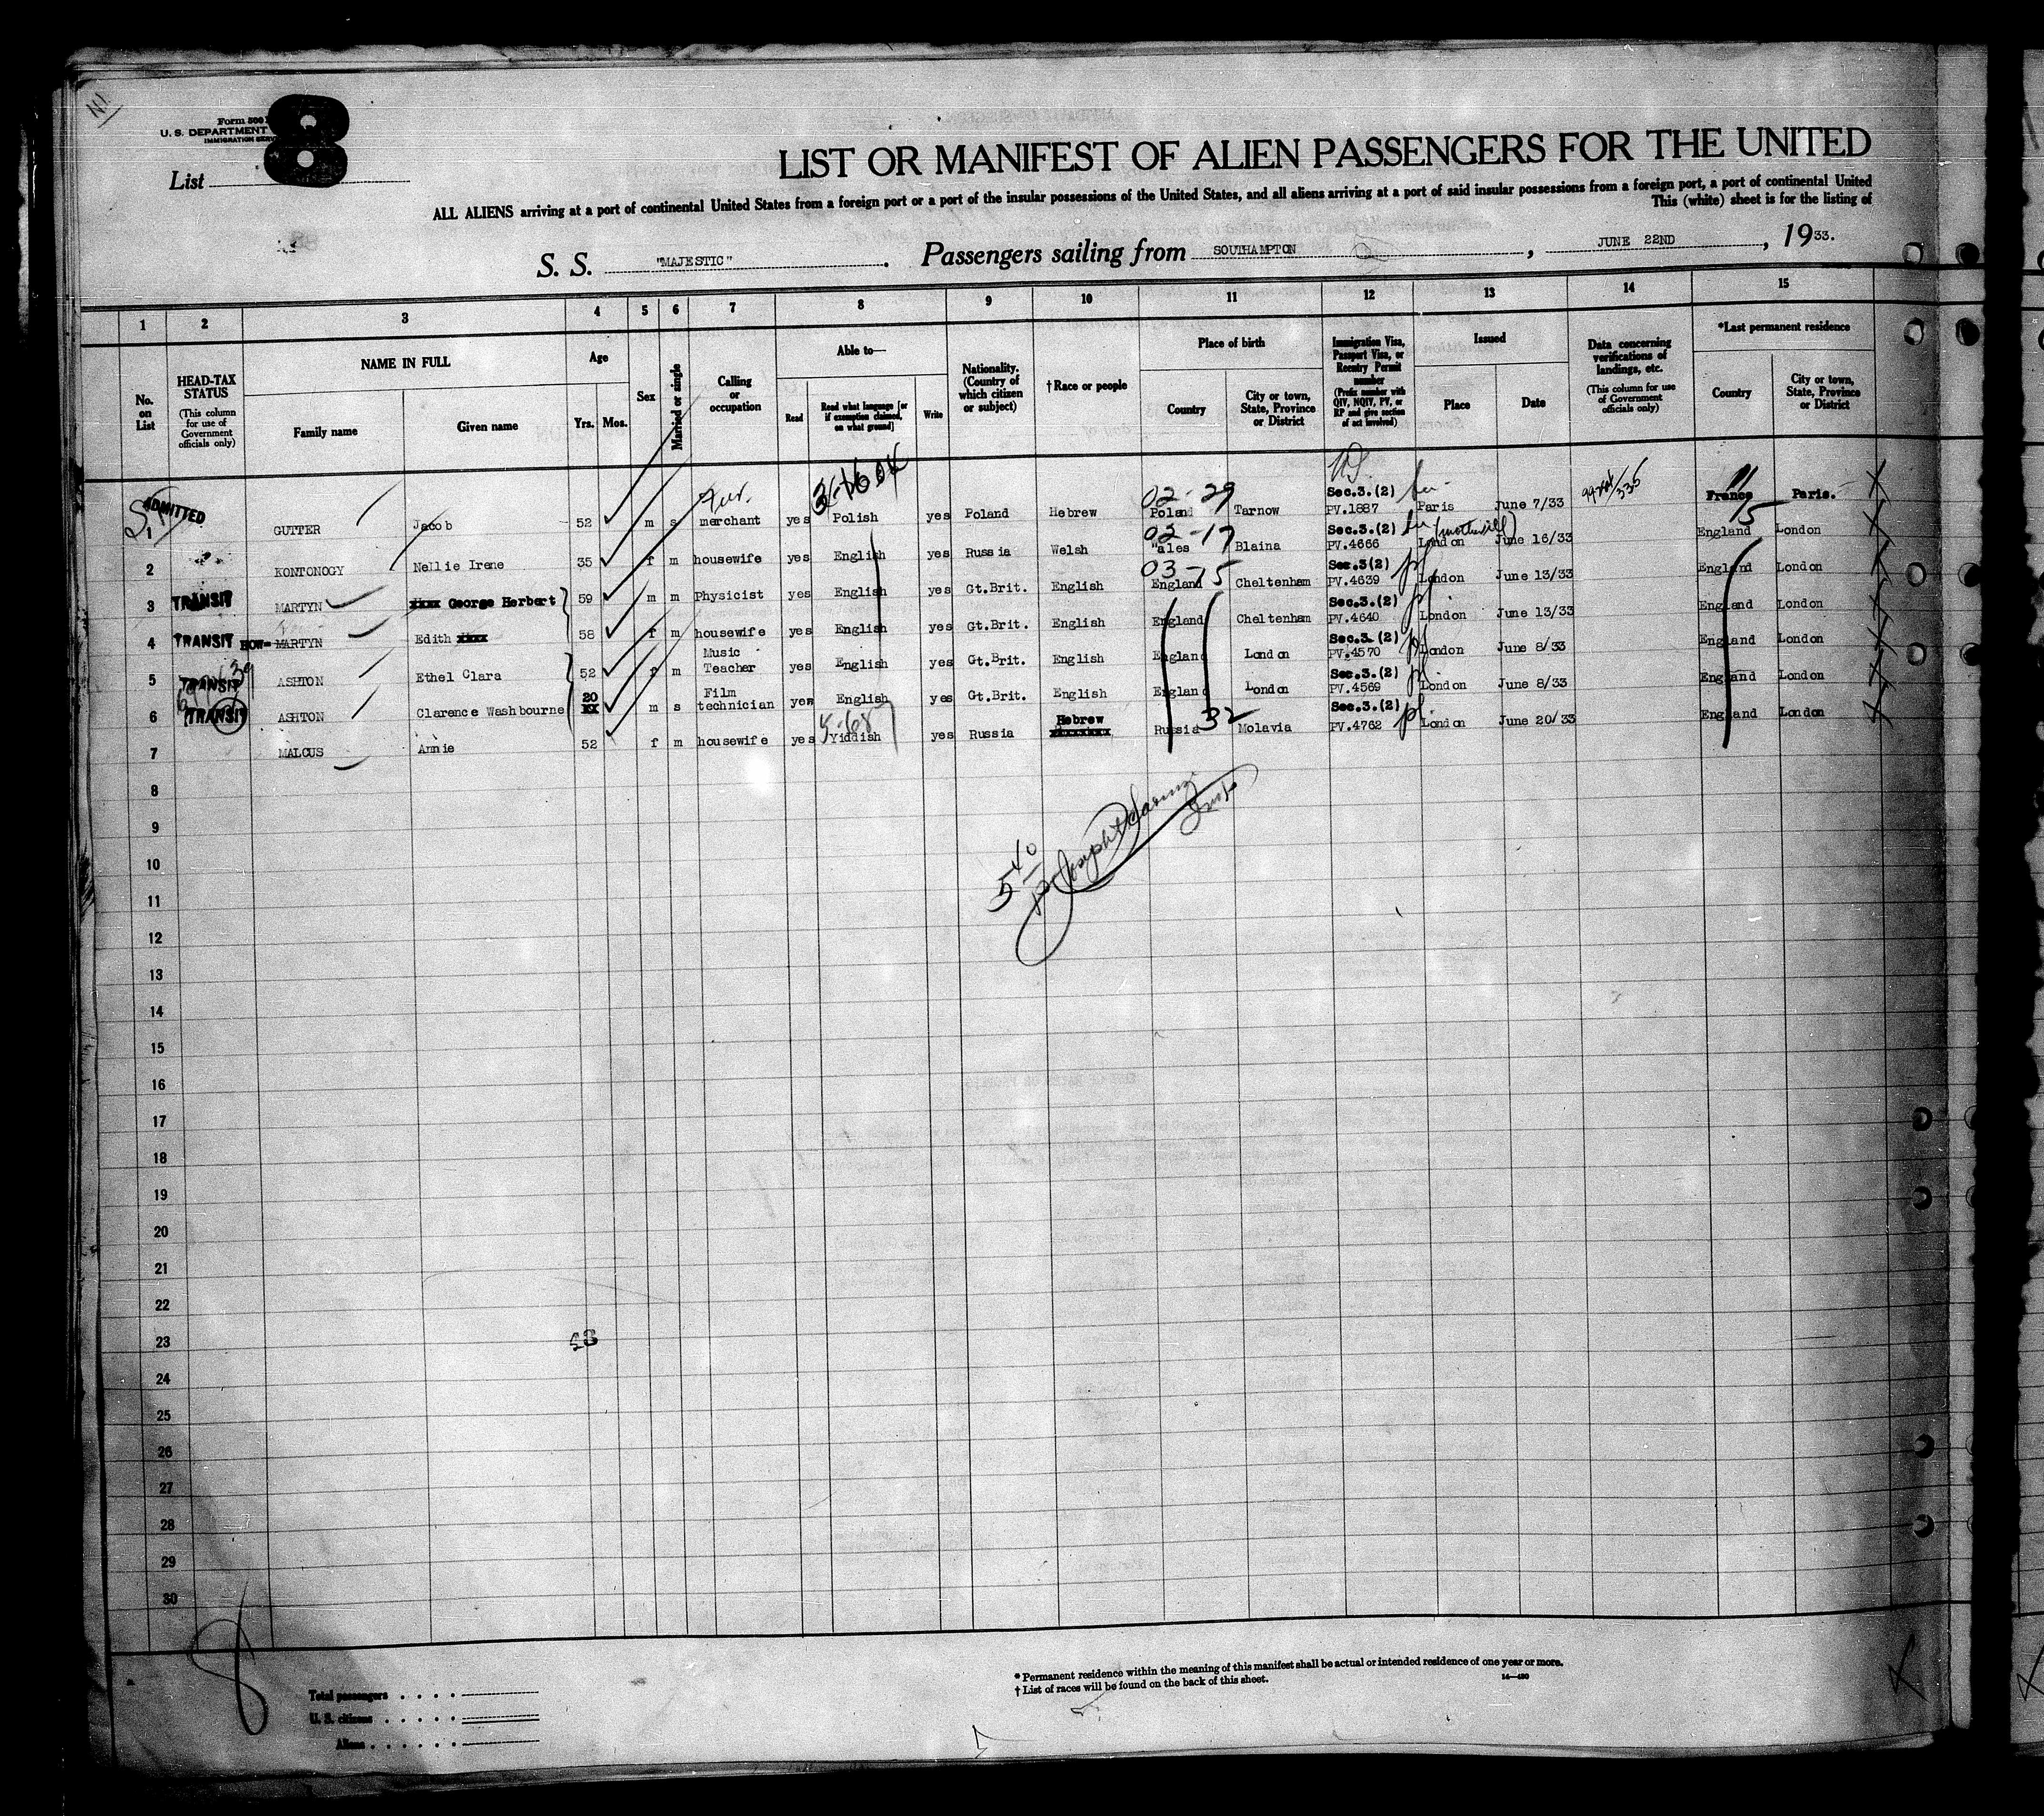 N1
Form 500
U. S. DEPARTMENT
IMMIGRATION SERV
8
List
LIST OR MANIFEST OF ALIEN PASSENGERS FOR THE UNITED
ALL ALIENS arriving at a port of continental United States from a foreign port or a port of the insular possessions of the United States, and all aliens arriving at a port of said insular possessions from a foreign port, a port of continental United
This (white) sheet is for the listing of
S. S. "MAJESTIC". Passengers sailing from SOUTHAMPTON, JUNE 22ND, 1933.
1 2 3 4 5 6 7 8 9 10 11 12 13 14 15
No. on List
HEAD-TAX STATUS
(This column for use of Government officials only)
NAME IN FULL
Family name Given name
Age
Yrs. Mos.
Sex
Married or single
Calling or occupation
Able to—
Read Read what language [or if exemption claimed, on what ground] Write
Nationality. (Country of which citizen or subject)
† Race or people
Place of birth
Country City or town, State, Province or District
Immigration Visa, Passport Visa, or Reentry Permit number
(Prefix number with QIV, NQIV, PV, or RP and give section of act involved)
Issued
Place Date
Data concerning verifications of landings, etc.
(This column for use of Government officials only)
*Last permanent residence
Country City or town, State, Province or District
1 ADMITTED GUTTER Jacob 52 m s Fur. merchant yes Polish yes Poland Hebrew 02-29 Poland Tarnow Sec.3.(2) PV.1887 Paris June 7/33 France Paris.
2 KONTONOGY Nellie Irene 35 f m housewife yes English yes Russia Welsh 02-17 "ales Blaina Sec.3.(2) PV.4666 London June 16/33 15 England London
3 TRANSIT MARTYN xxxx George Herbert 59 m m Physicist yes English yes Gt.Brit. English 03-15 England Cheltenham Sec.3(2) PV.4639 London June 13/33 England London
4 TRANSIT HOW= MARTYN Edith xxxx 58 f m housewife yes English yes Gt.Brit. English England Cheltenham Sec.3.(2) PV.4640 London June 13/33 England London
5 TRANSIT ASHTON Ethel Clara 52 f m Music Teacher yes English yes Gt.Brit. English England London Sec.3.(2) PV.4570 London June 8/33 England London
6 TRANSIT ASHTON Clarence Washbourne 20 xx m s Film technician yes English yes Gt.Brit. English England London Sec.3.(2) PV.4569 London June 8/33 England London
7 MALCUS Annie 52 f m housewife yes Yiddish yes Russia Hebrew xxxxxxxx Russia 32 Molavia Sec.3.(2) PV.4762 London June 20/33 England London
8
9
10
11
12
13
14
15
16
17
18
19
20
21
22
23
24
25
26
27
28
29
30
8
Total passengers
U. S. citizens
Aliens
* Permanent residence within the meaning of this manifest shall be actual or intended residence of one year or more.
† List of races will be found on the back of this sheet.
14—430